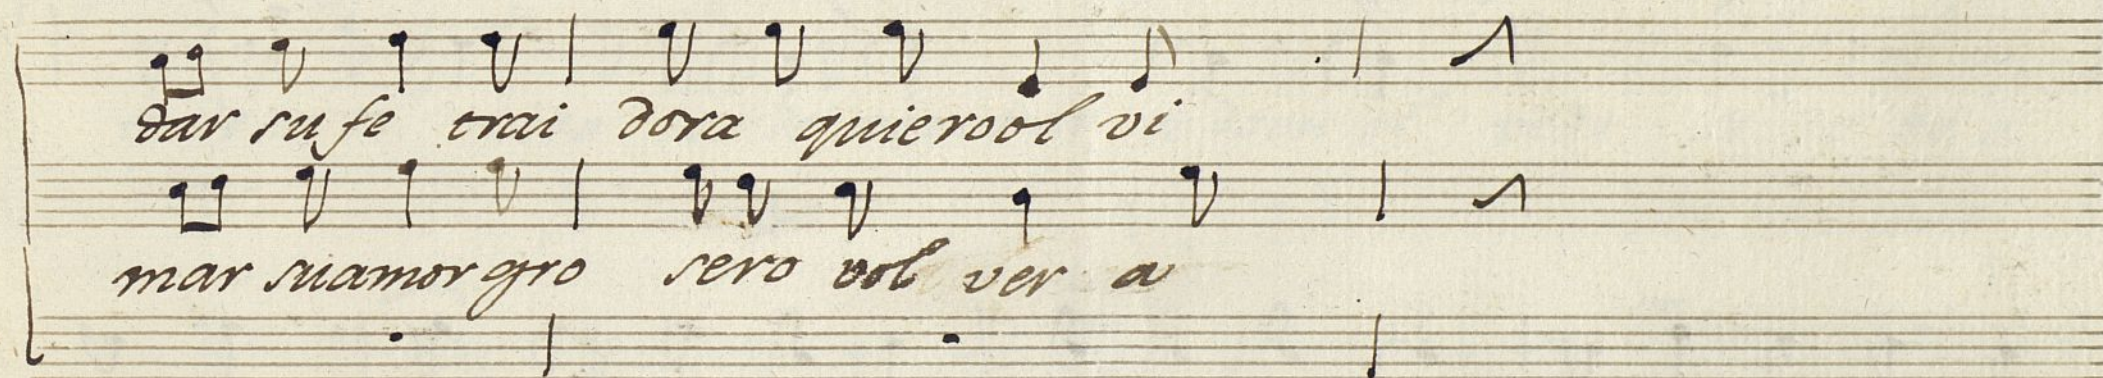 dar su fe trai dora quierool vi
mar suamor gro sero vol ver a